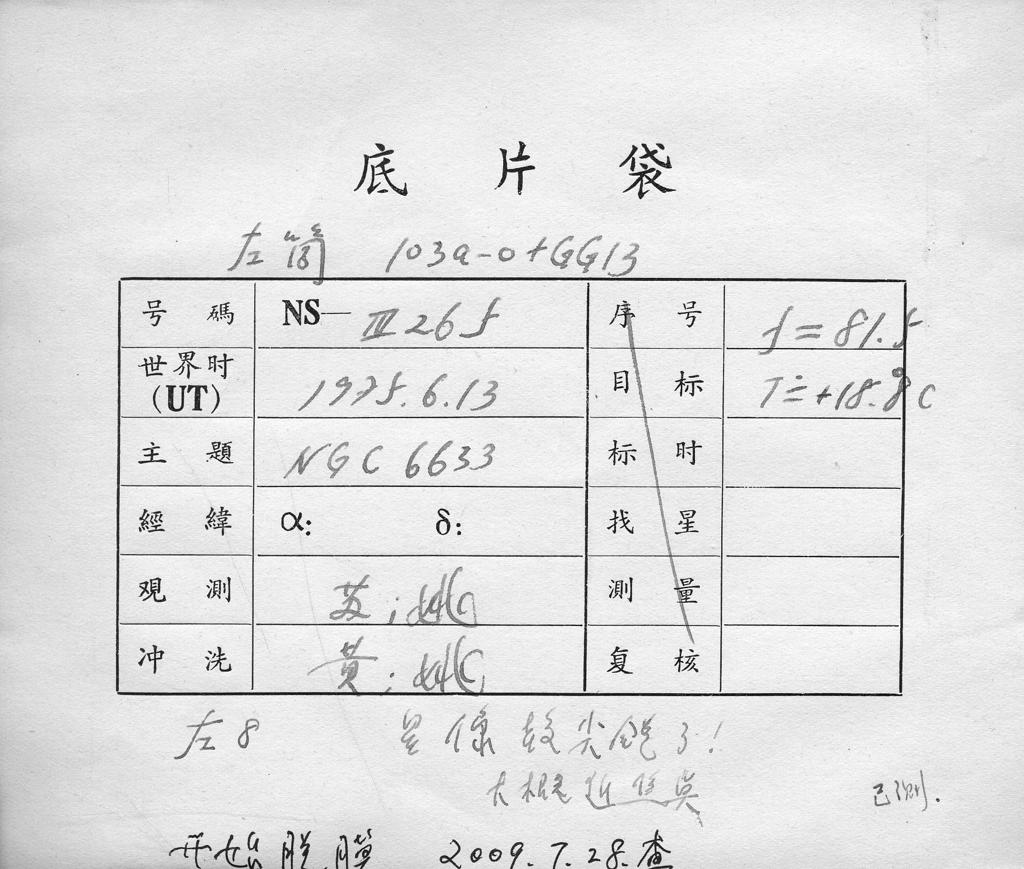 底 片 袋
左筒 103a-o+GG13
号 碼 NS—Ⅲ265 序 号 f=81.5
世界时(UT) 1975.6.13 目 标 T=+18.8°C
主 題 NGC 6633 标 时
經 緯 α: δ: 找 星
观 測 苏;姚 測 量
冲 洗 黄;姚 复 核
左8 星像 尖 了!
大概 已测.
开始脱膜 2009.7.28.查